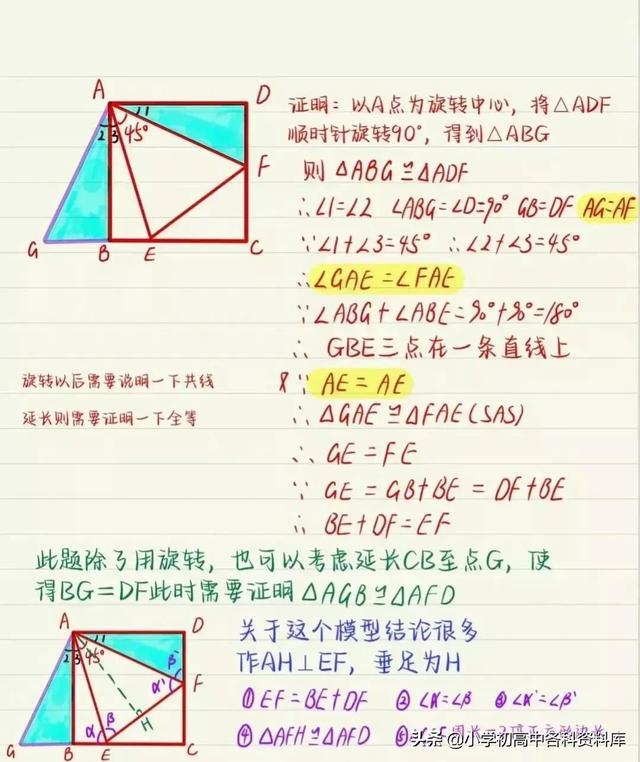 A D
1
2 3 45°
F
G B E C
证明：以A点为旋转中心，将△ADF
顺时针旋转90°，得到△ABG
则 △ABG≌△ADF
∴∠1=∠2 ∠ABG=∠D=90° GB=DF AG=AF
∵∠1+∠3=45° ∴∠2+∠3=45°
∴∠GAE=∠FAE
∵∠ABG+∠ABE=90°+90°=180°
∴ GBE三点在一条直线上
旋转以后需要说明一下共线
又∵ AE=AE
延长则需要证明一下全等
∴ △GAE≌△FAE(SAS)
∴ GE=FE
∵ GE=GB+BE=DF+BE
∴ BE+DF=EF
此题除了用旋转，也可以考虑延长CB至点G，使
得BG=DF此时需要证明△AGB≌△AFD
A D
1
2 3 45°
β'
α' F
H
α β
G B E C
关于这个模型结论很多
作AH⊥EF，垂足为H
① EF=BE+DF ② ∠α=∠β ③ ∠α'=∠β'
④ △AFH≌△AFD ⑤
头条 @小学初高中各科资料库